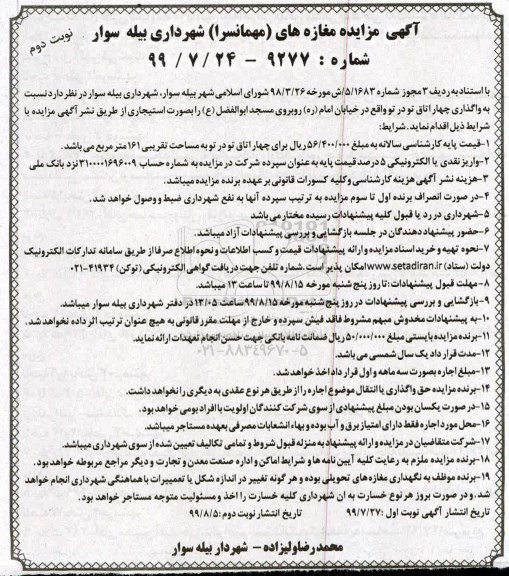 آگهی مزایده مغازه های (مهمانسرا) شهرداری بیله سوار
نوبت دوم
شماره : ۹۲۷۷ - ۲۴ / ۷ / ۹۹
با استناد به ردیف ۳ مجوز شماره ۵/۱۶۸۳/ش مورخه ۹۸/۳/۲۶ شورای اسلامی شهر بیله سوار، شهرداری بیله سوار در نظر دارد نسبت
به واگذاری چهار اتاق تو در تو واقع در خیابان امام (ره) روبروی مسجد ابوالفضل (ع) را بصورت استیجاری از طریق نشر آگهی مزایده با
شرایط ذیل اقدام نماید .شرایط:
۱-قیمت پایه کارشناسی سالانه به مبلغ ۵۶/۴۰۰/۰۰۰ ریال برای چهار اتاق تو در تو به مساحت تقریبی ۱۶۱ متر مربع می باشد.
۲-واریز نقدی یا الکترونیکی ۵ درصد قیمت پایه به عنوان سپرده شرکت در مزایده به شماره حساب ۳۱۰۰۰۰۱۶۹۶۰۰۹ نزد بانک ملی
۳-هزینه نشر آگهی هزینه کارشناسی وکلیه کسورات قانونی بر عهده برنده مزایده میباشد.
۴-در صورت انصراف برنده اول تا سوم مزایده به ترتیب سپرده آنها به نفع شهرداری ضبط و وصول خواهد شد.
۵-شهرداری در رد یا قبول کلیه پیشنهادات رسیده مختار می باشد
۶-حضور پیشنهاد دهندگان در جلسه بازگشایی و بررسی پیشنهادات آزاد میباشد.
۷-نحوه تهیه و خرید اسناد مزایده و ارائه پیشنهادات قیمت و کسب اطلاعات و نحوه اطلاع صرفا از طریق سامانه تدارکات الکترونیک
دولت (ستاد) www.setadiran.ir امکان پذیر است .شماره تلفن جهت دریافت گواهی الکترونیکی (توکن) ۴۱۹۳۴-۰۲۱
۸-مهلت قبول پیشنهادات :تا روز پنج شنبه مورخه ۹۹/۸/۱۵ تا ساعت ۱۳ میباشد.
۹-بازگشایی و بررسی پیشنهادات در روز پنج شنبه مورخه ۹۹/۸/۱۵ ساعت ۱۳/۰۵ در دفتر شهرداری بیله سوار میباشد.
۱۰-به پیشنهادات مخدوش مبهم مشروط فاقد فیش سپرده و خارج از مهلت مقرر قانونی به هیچ عنوان ترتیب اثر داده نخواهد شد.
۱۱-برنده مزایده بایستی مبلغ ۵۰/۰۰۰/۰۰۰ ریال ضمانت نامه بانکی جهت حسن انجام تعهدات ارائه نماید.
۱۲-مدت قرار داد یک سال شمسی می باشد.
۱۳-مبلغ اجاره بصورت سه ماهه و اول قرار داد اخذ خواهد شد.
۱۴-برنده مزایده حق واگذاری یا انتقال موضوع اجاره را از طریق هر نوع عقدی به دیگری را نخواهد داشت.
۱۵-در صورت یکسان بودن مبلغ پیشنهادی از سوی شرکت کنندگان اولویت با افراد بومی خواهد بود.
۱۶-محل مورد اجاره فقط دارای امتیاز برق و آب بوده و بهاء انشعابات مصرفی بعهده مستاجر میباشد.
۱۷-شرکت متقاضیان در مزایده و ارائه پیشنهاد به منزله قبول شروط و تمامی تکالیف تعیین شده از سوی شهرداری میباشد.
۱۸-برنده مزایده ملزم به رعایت کلیه آیین نامه ها و شرایط اماکن و اداره صنعت معدن و تجارت و دیگر مراجع مربوطه خواهد بود.
۱۹-برنده موظف به نگهداری مغازه های تحویلی بوده و هر گونه تغییر در اندازه شکل یا تعمییرات با هماهنگی شهرداری انجام خواهد
شد .و در صورت بروز هر نوع خسارت به ان شهرداری کلیه خسارت را اخذ و مسئولیت متوجه مستاجر خواهد بود.
تاریخ انتشار آگهی نوبت اول :۹۹/۷/۲۷ تاریخ انتشار نوبت دوم :۹۹/۸/۵
محمدرضا ولیزاده - شهردار بیله سوار
۰۲۱-۸۸۳۴۹۶۷۰-۵